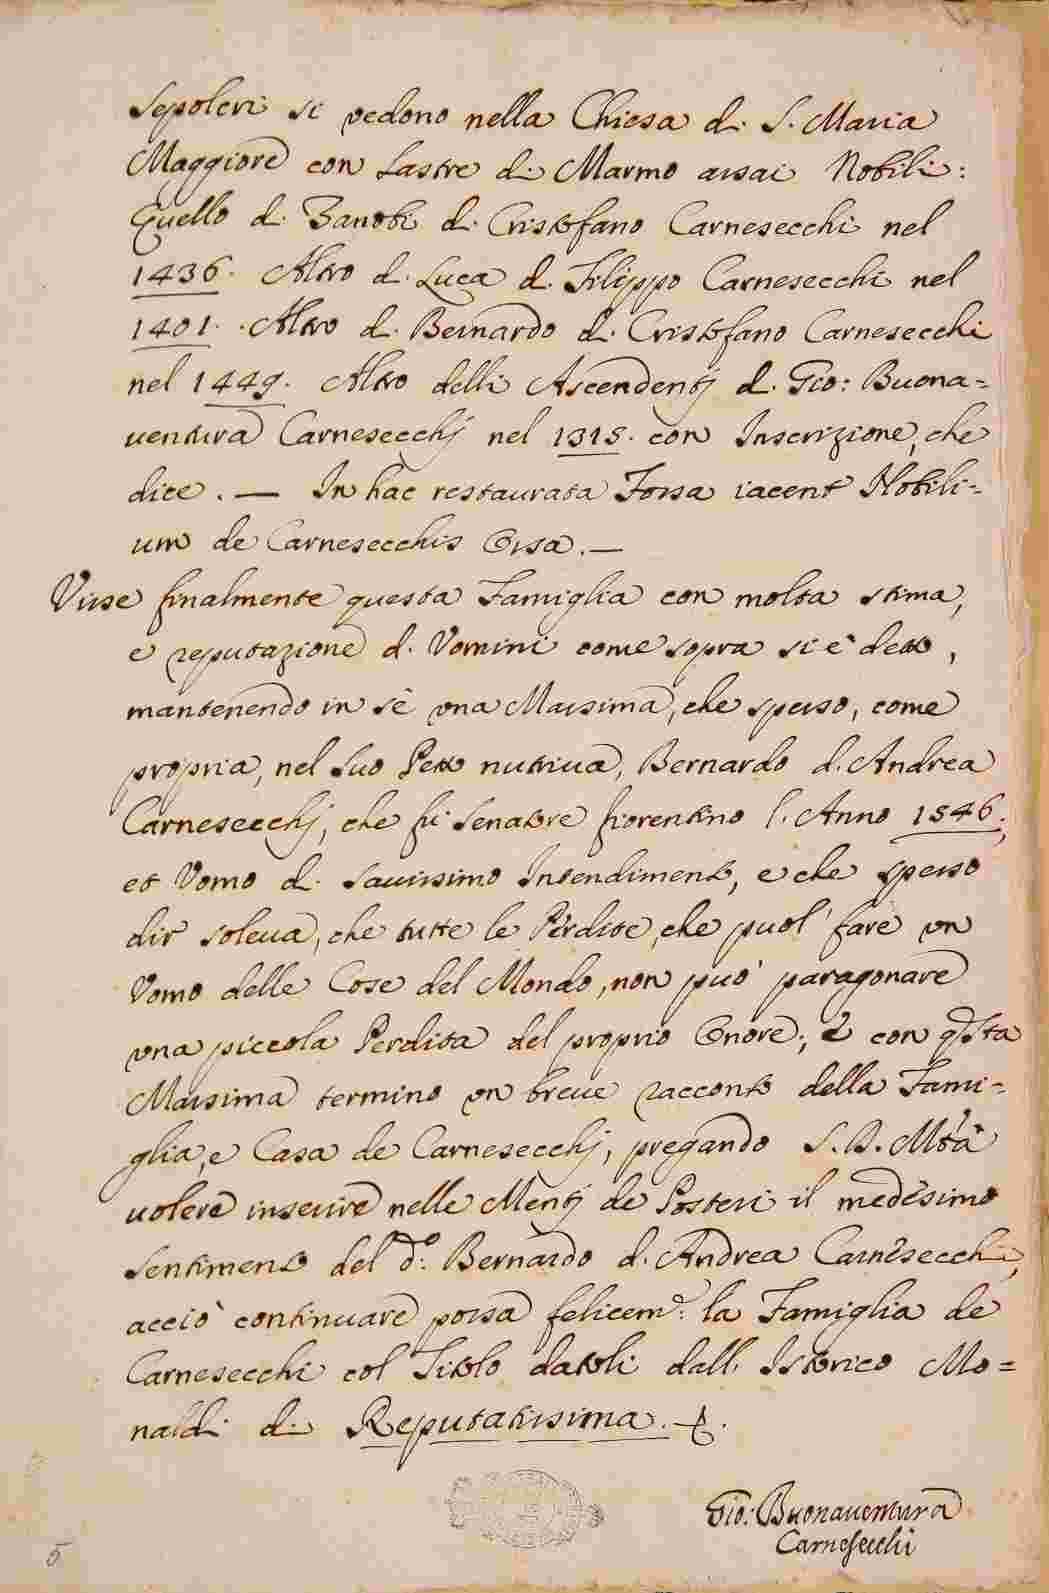 Sepolcri si vedono nella Chiesa d. S. Maria
Maggiore con Lastre d. Marmo assai Nobili:
Quello d. Zanobi d. Cristofano Carnesecchi nel
1436. Altro d. Luca d. Filippo Carnesecchi nel
1401. Altro d. Bernardo d. Cristofano Carnesecchi
nel 1449. Altro delli Ascendentj d. Gio: Buona=
uentura Carnesecchj nel 1315. con Inscrizione, che
dice. — In hac restaurata Fossa iacent Nobili=
um de Carnesecchis Ossa. —
Visse finalmente questa Famiglia con molta stima,
e reputazione d. Vomini come sopra si è detto,
mantenendo in sè vna Massima, che spesso, come
propria, nel suo Petto nutriua, Bernardo d. Andrea
Carnesecchj, che fù Senatore fiorentino l. Anno 1546.,
et Vomo d. sauissimo Intendimento, e che spesso
dir soleua, che tutte le Perdite, che puol' fare vn
Vomo delle Cose del Mondo, non può paragonare
vna piccola Perdita del proprio Onore; E con qsta
Massima termino vn breue racconto della Fami=
glia, e Casa de Carnesecchj, pregando S. B. Mtà
uolere inserire nelle Mentj de Posteri il medesimo
sentimento del do: Bernardo d. Andrea Carnesecchi,
acciò continuare possa felicem: la Famiglia de
Carnesecchi col Titolo datoli dall. Istorico Mo=
naldi di Reputatissima.
Gio: Buonauentura
Carnesecchi
5